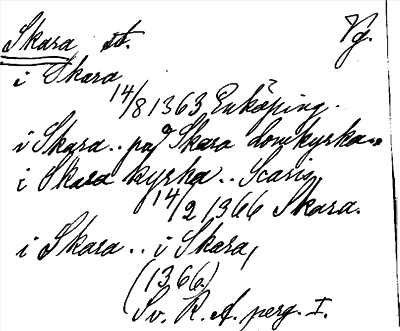 Skara st. Vg.
i Skara
14/8 1363 Enköping.
i Skara.. paa Skara domkyrka..
i Skara kyrka.. Scaris
14/2 1366 Skara.
i Skara.. i Skara,
(1366)
Sv. R. A. perg. I.